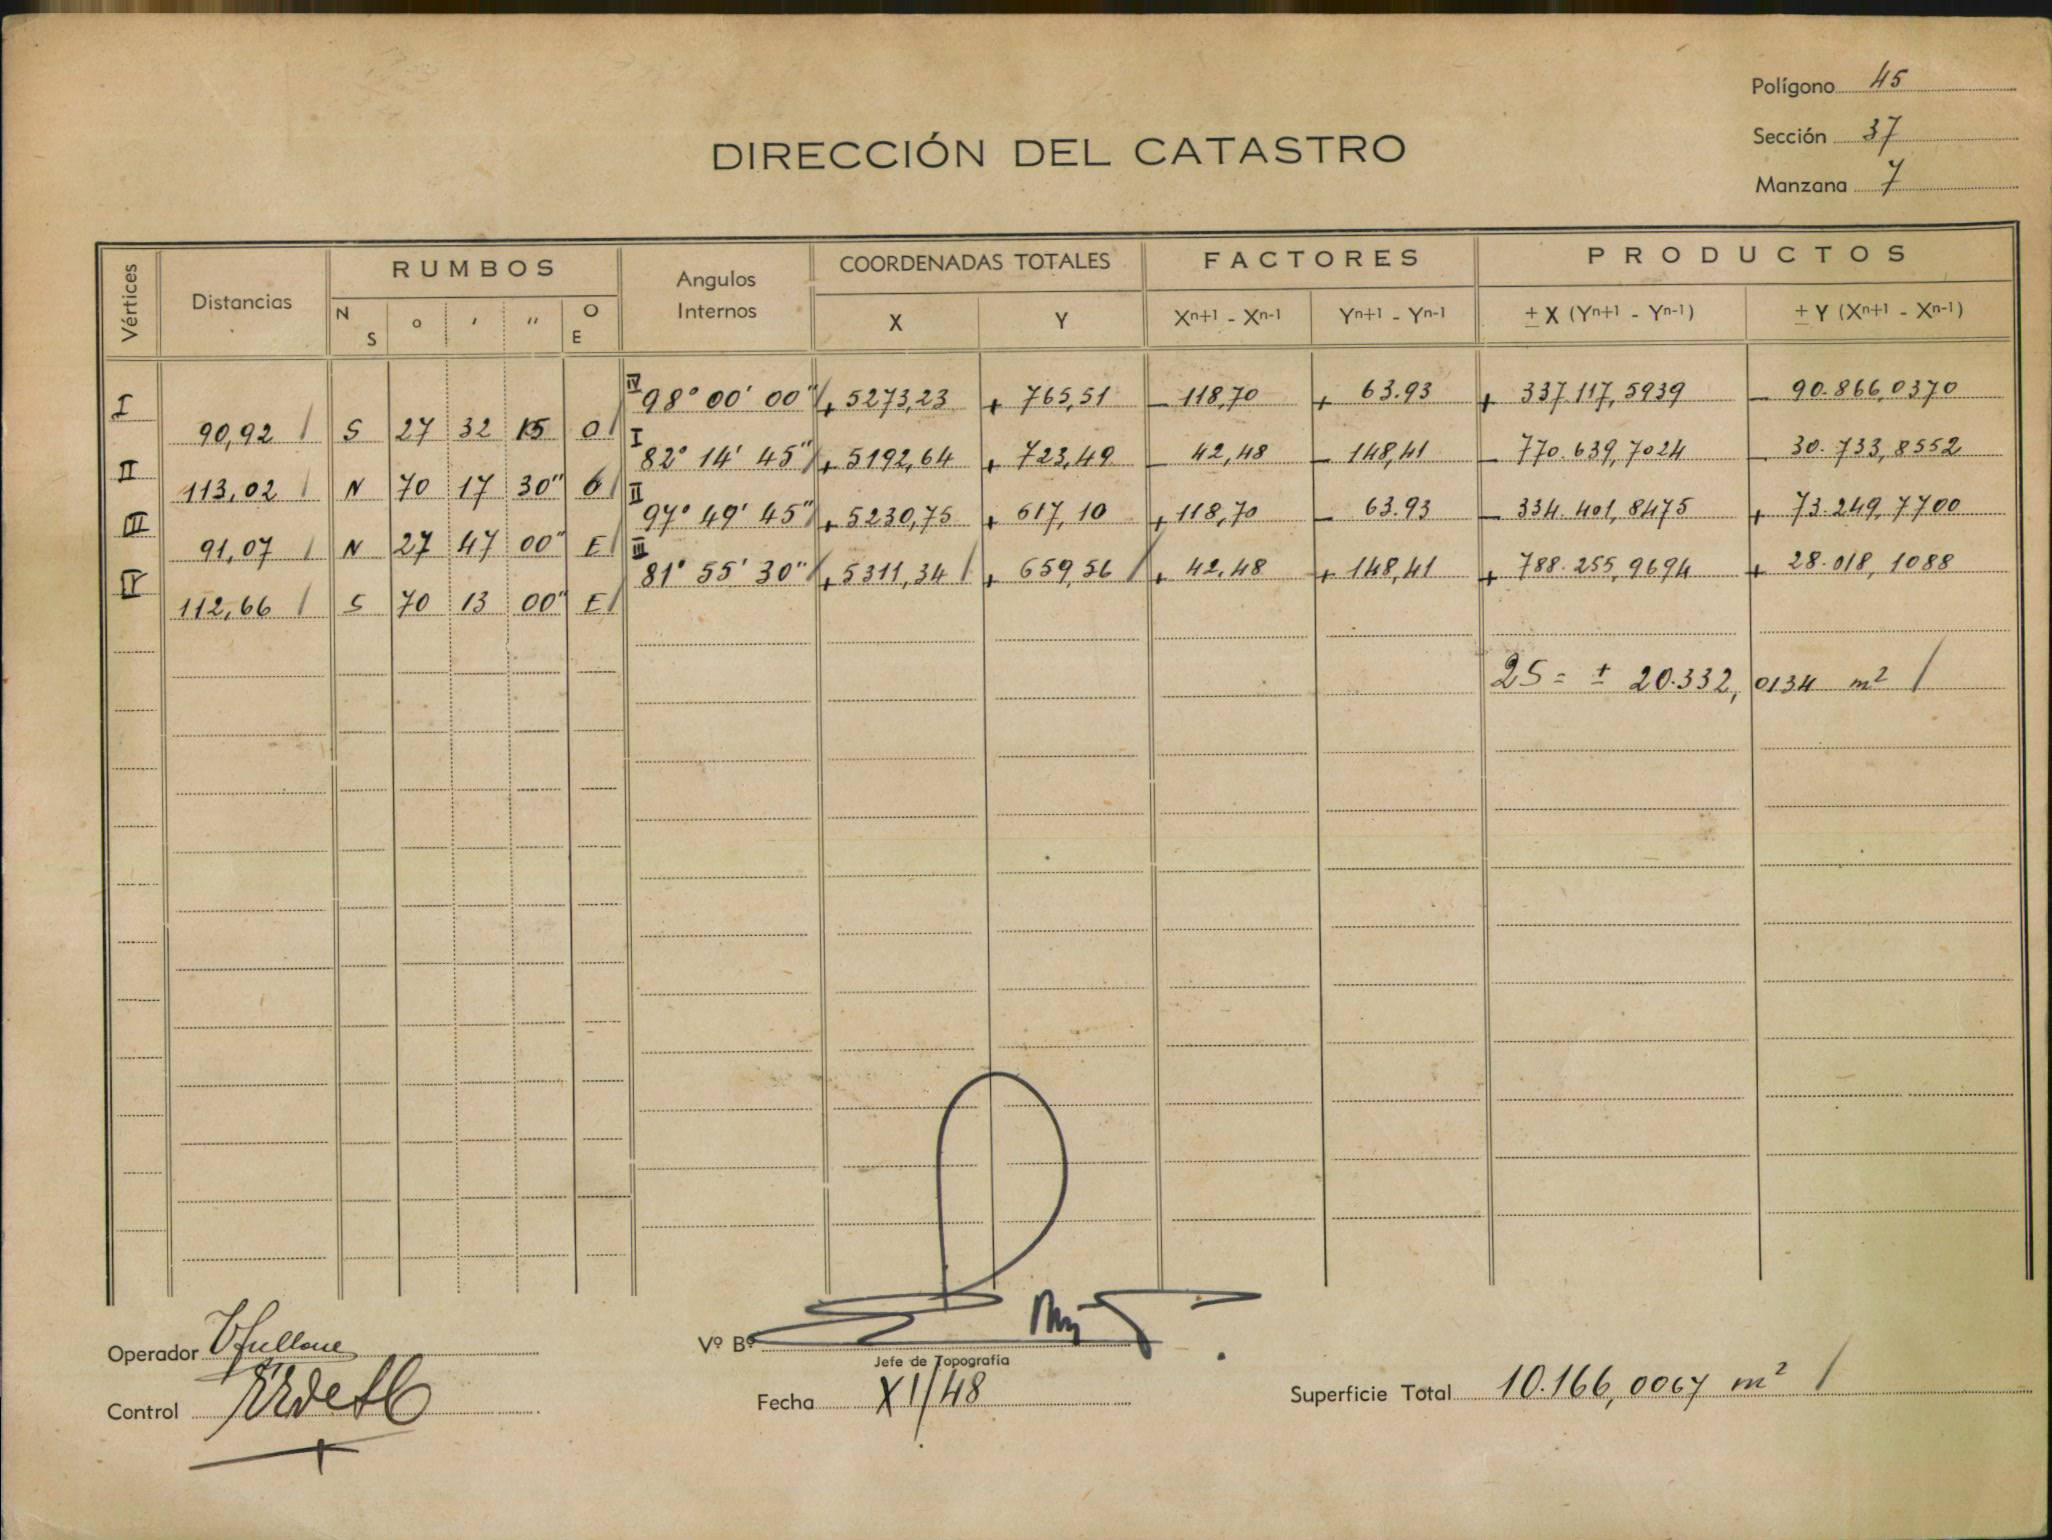 Polígono 45
Sección 37
Manzana 7
DIRECCIÓN DEL CATASTRO
Vértices Distancias RUMBOS Angulos Internos COORDENADAS TOTALES FACTORES PRODUCTOS
N S ° ' '' O E X Y Xn+1 - Xn-1 Yn+1 - Yn-1 ± X (Yn+1 - Yn-1) ± Y (Xn+1 - Xn-1)
I IV 98° 00' 00" + 5273,23 + 765,51 - 118,70 + 63.93 + 337.117,5939 - 90.866,0370
90,92 S 27 32 15 O
II I 82° 14' 45" + 5192,64 + 723,49 - 42,48 - 148,41 - 770.639,7024 - 30.733,8552
113,02 N 70 17 30" O
III II 97° 49' 45" + 5230,75 + 617,10 + 118,70 - 63.93 - 334.401,8475 + 73.249,7700
91,07 N 27 47 00" E
IV III 81° 55' 30" + 5311,34 + 659,56 + 42,48 + 148,41 + 788.255,9694 + 28.018,1088
112,66 S 70 13 00" E
2S = ± 20.332,0134 m²
Operador
Vº Bº
Jefe de Topografía
Control
Fecha XI/48
Superficie Total 10.166,0067 m²